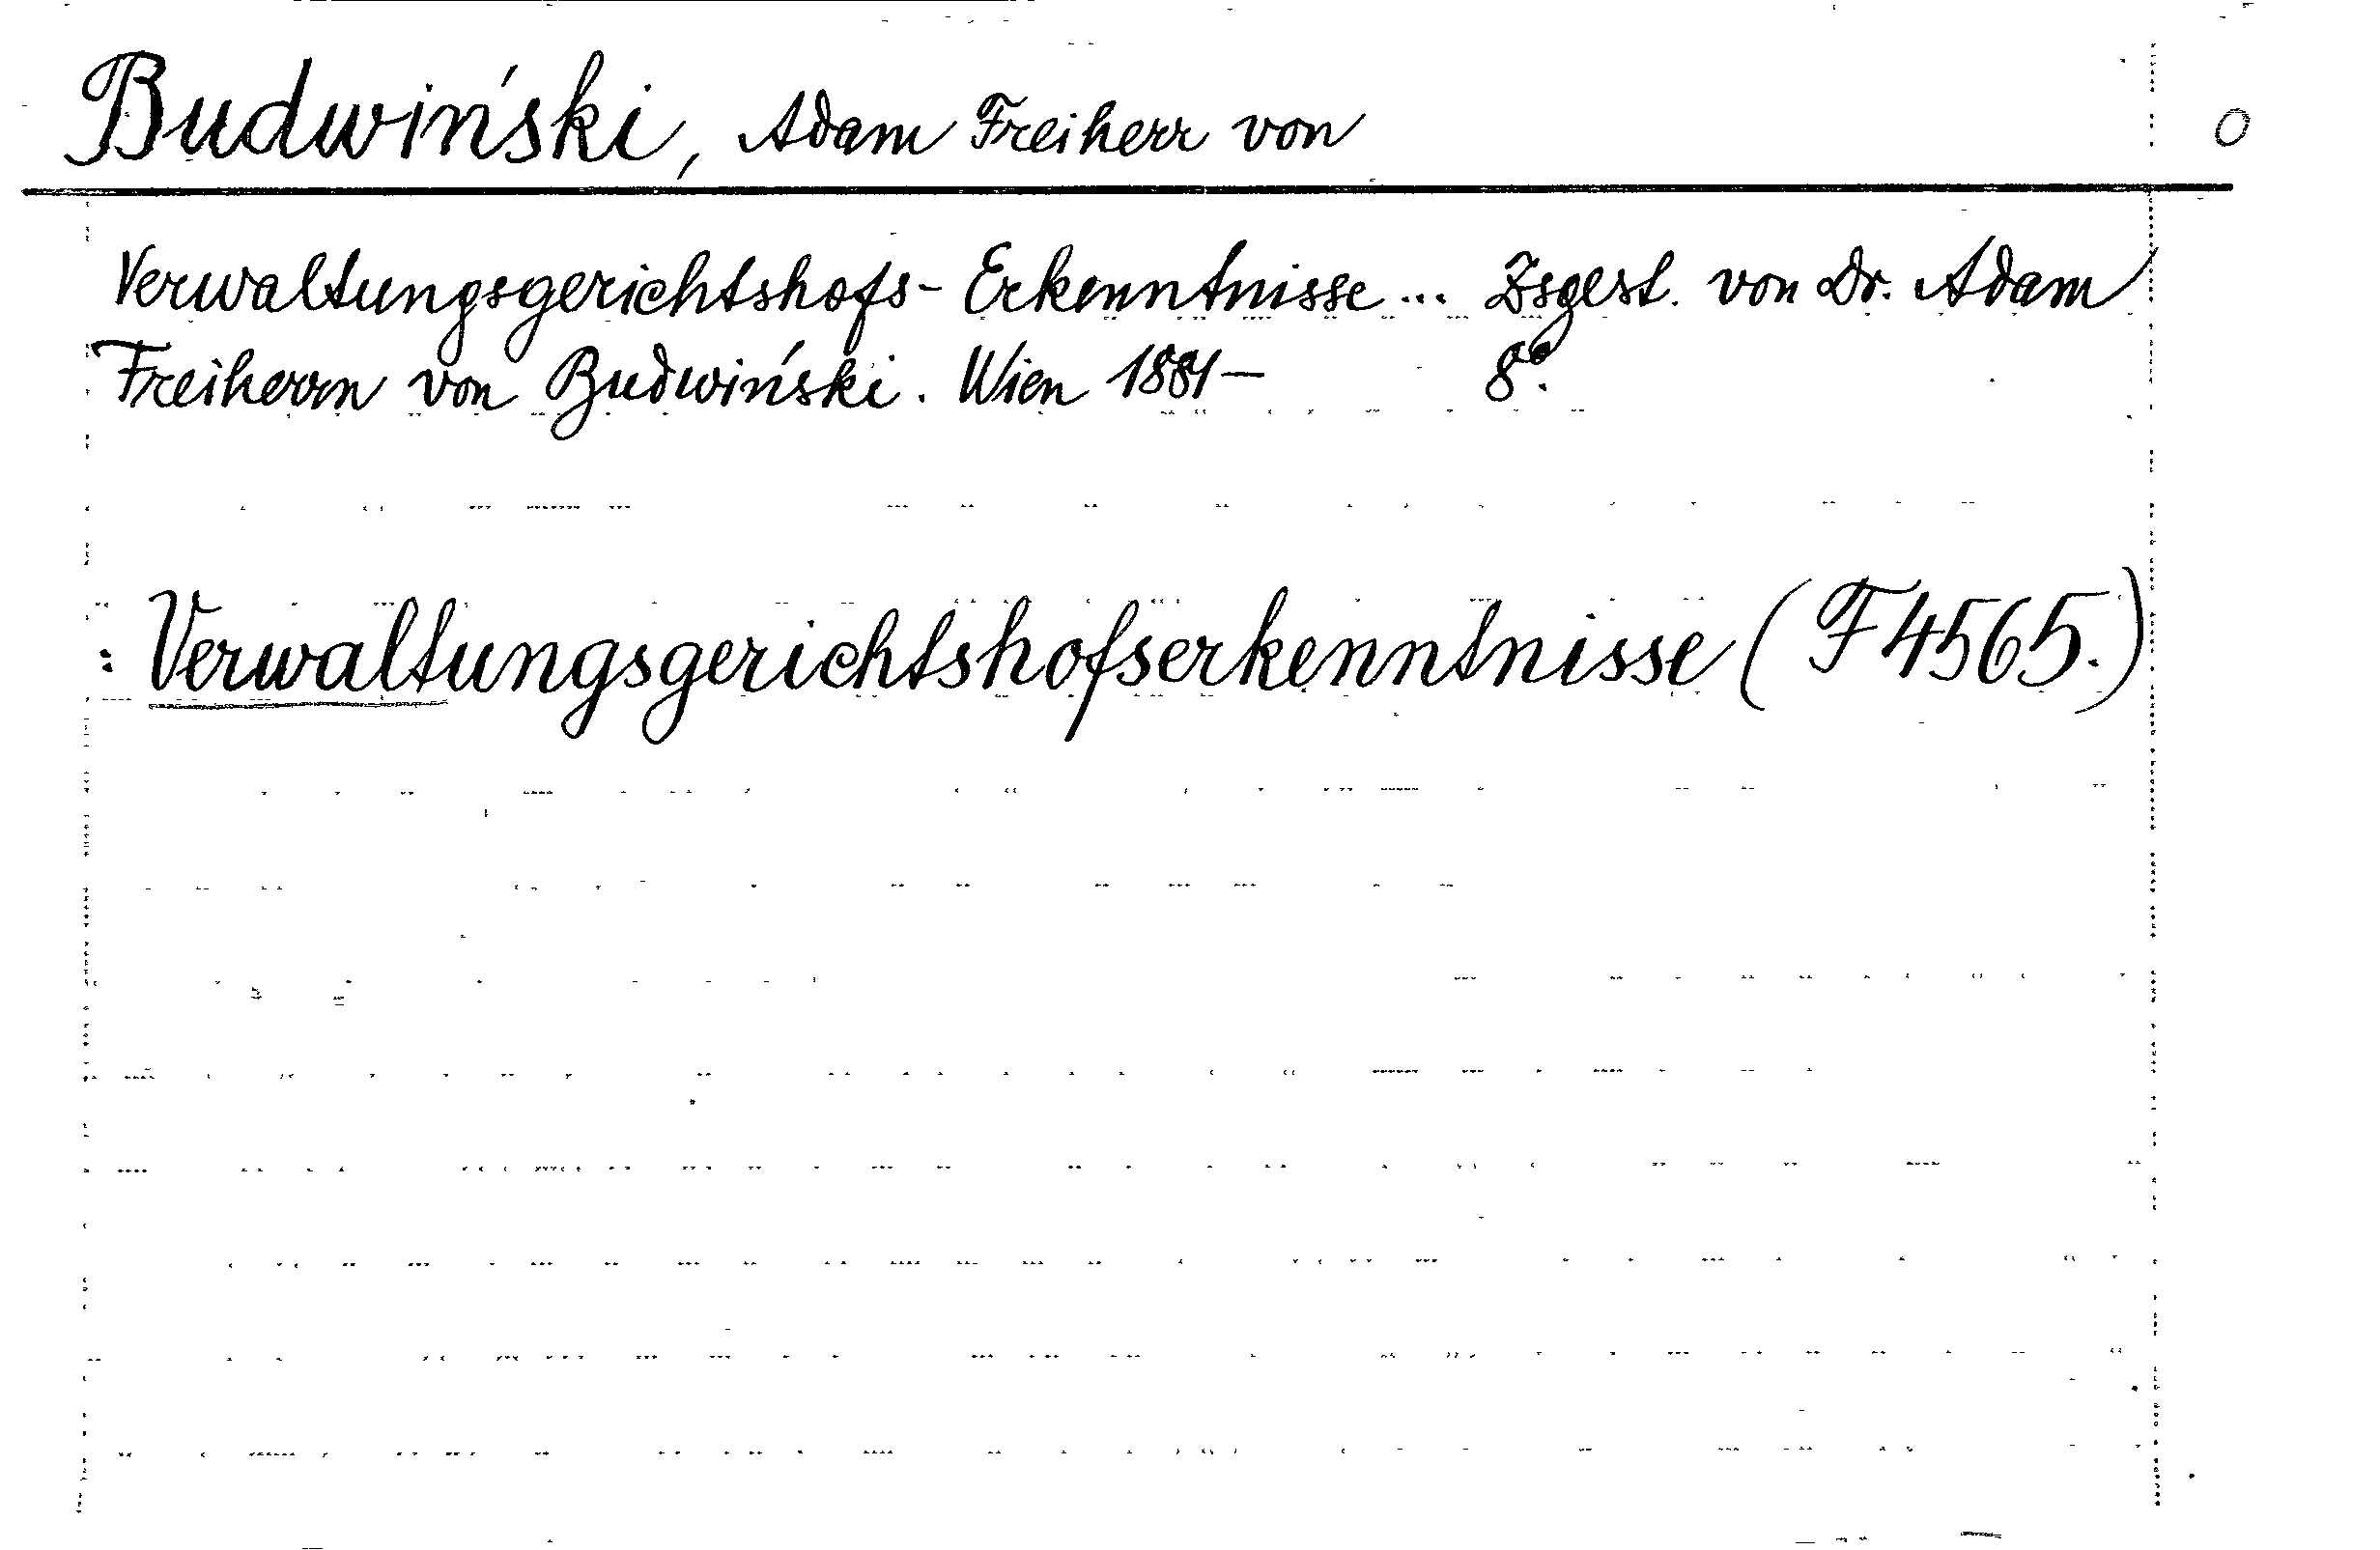 Budwiński, Adam Freiherr von O
Verwaltungsgerichtshofs-Erkenntnisse... Zsgest. von Dr. Adam
Freiherrn von Budwiński. Wien 1881— 8°.
: Verwaltungsgerichtshofserkenntnisse (F 4565.)